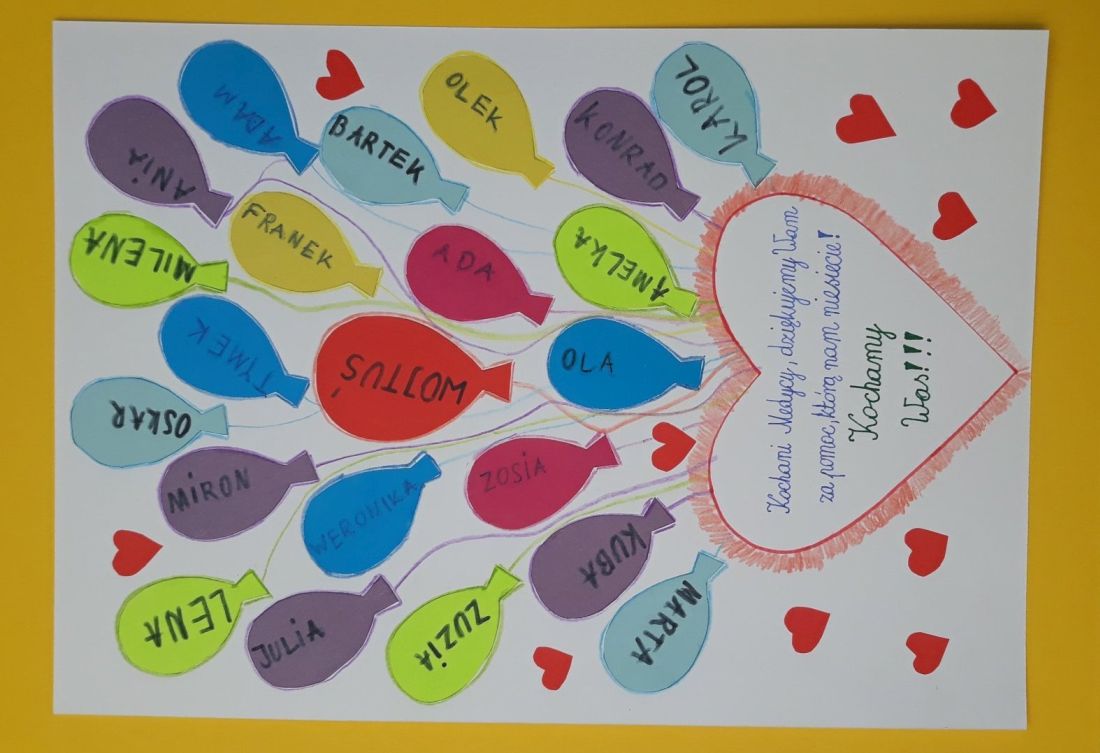 ADAM
ANIA
BARTEK
OLEK
KONRAD
KAROL
MILENA
FRANEK
ADA
AMELKA
TYMEK
WOJTUŚ
OLA
OSKAR
MIRON
WERONIKA
ZOSIA
KUBA
LENA
JULIA
ZUZIA
MARTA
Kochani Medycy, dziękujemy Wam
za pomoc, którą nam niesiecie!
Kochamy
Was!!!